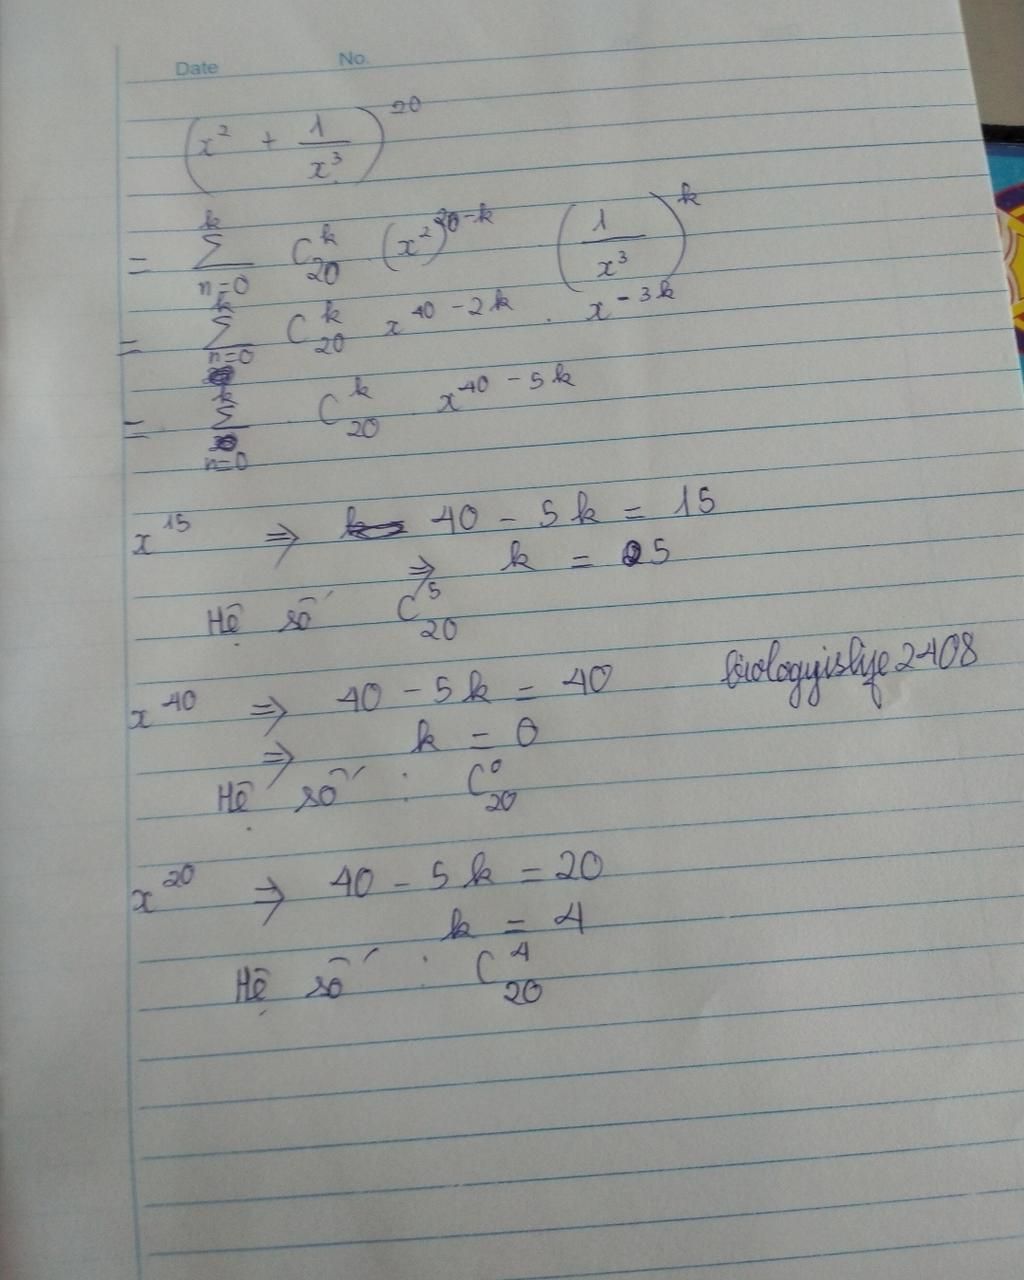 Date No.
(x² + 1/x³)²⁰
= Σ_{n=0}^{k} C_{20}^{k} (x²)^{20-k} (1/x³)^{k}
= Σ_{n=0}^{k} C_{20}^{k} x^{40-2k} . x^{-3k}
= Σ_{n=0}^{k} C_{20}^{k} x^{40-5k}
x¹⁵ ⇒ 40 - 5k = 15
⇒ k = 5
Hệ số C_{20}^{5}
x⁴⁰ ⇒ 40 - 5k = 40 biologyislife2408
⇒ k = 0
Hệ số : C_{20}^{0}
x²⁰ ⇒ 40 - 5k = 20
k = 4
Hệ số : C_{20}^{4}